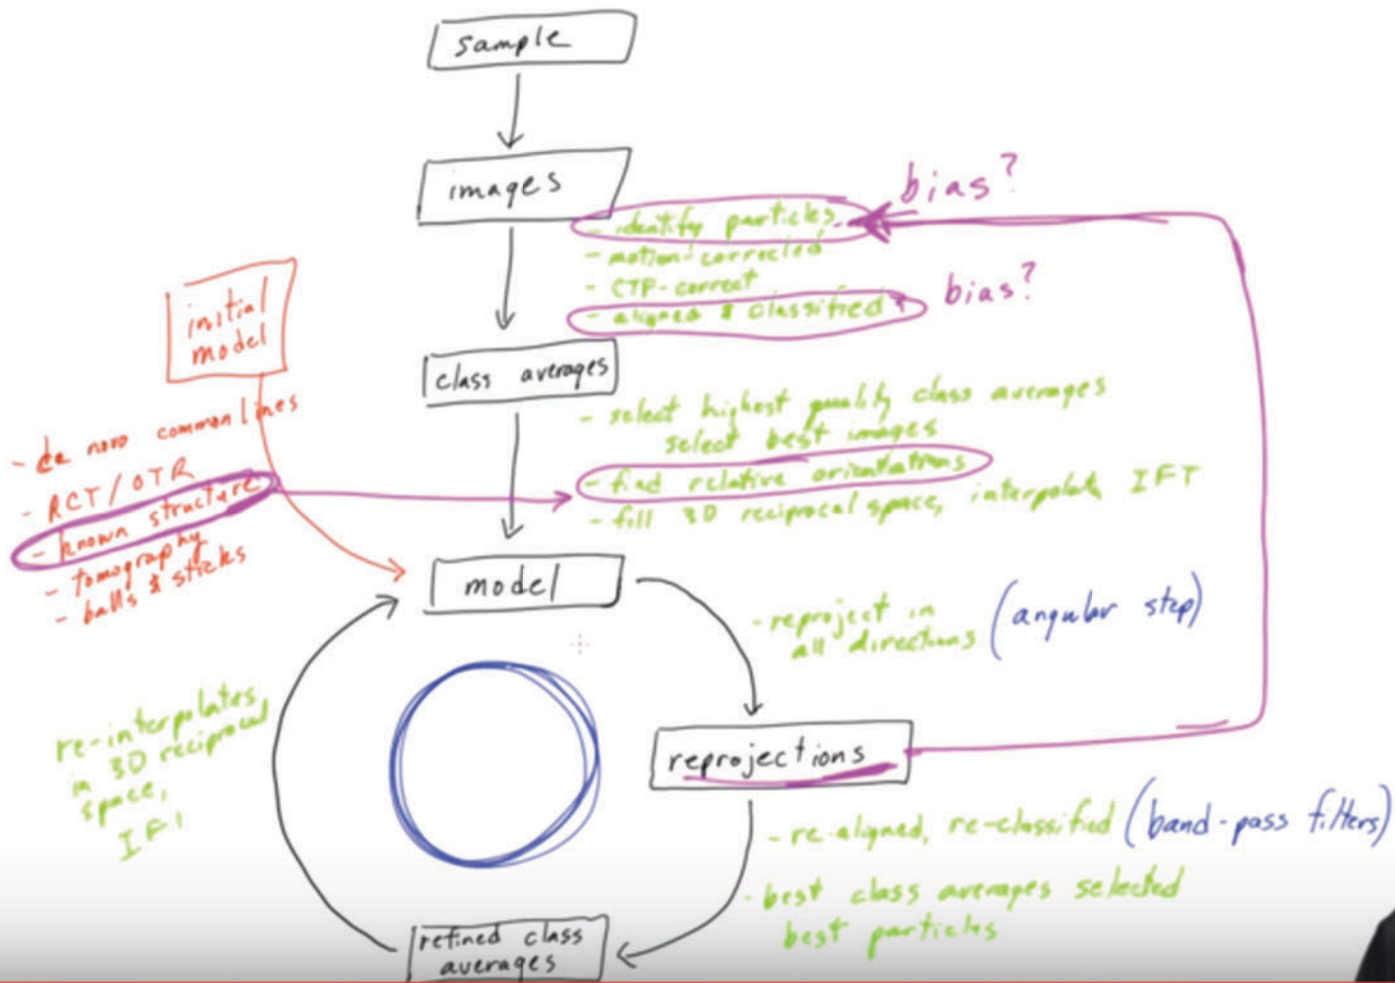 sample
images
bias?
- identify particles
- motion-corrected
- CTF-correct
- aligned & classified
bias?
initial
model
class averages
- select highest quality class averages
select best images
- find relative orientations
- fill 3D reciprocal space, interpolate, IFT
- de novo common lines
- RCT/OTR
- known structure
- tomography
- balls & sticks
model
- reproject in
all directions
(angular step)
reprojections
re-interpolates
in 3D reciprocal
space,
IFT
- re-aligned, re-classified (band-pass filters)
- best class averages selected
best particles
refined class
averages